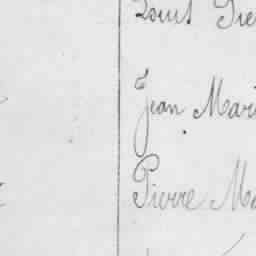 Louis Pie
Jean Mari
Pierre Ma